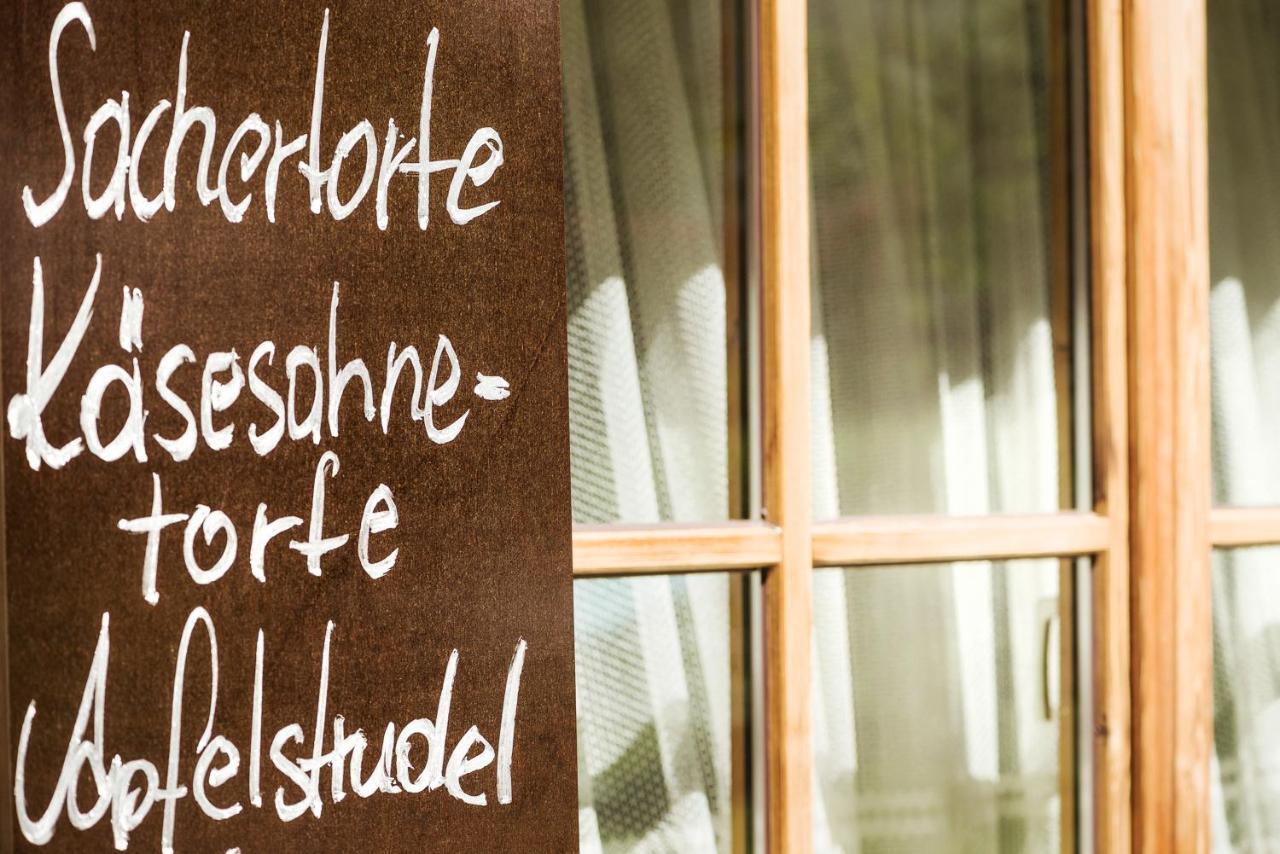 Sachertorte
Käsesahne-
torte
Apfelstrudel